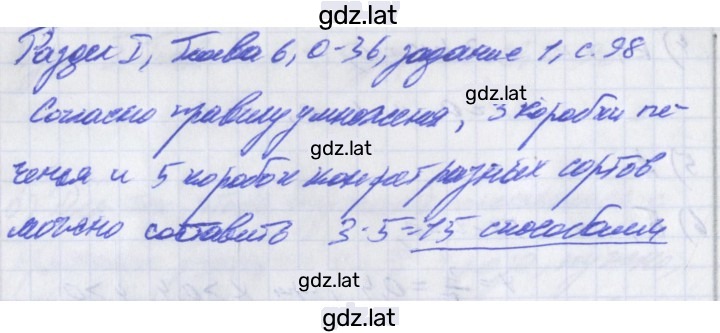 gdz.lat
Раздел I, Глава 6, О-36, задание 1, с. 98
Согласно правилу умножения, 3 коробки пе-
gdz.lat
gdz.lat
ченья и 5 коробок конфет разных сортов
можно составить 3·5=15 способами
gdz.lat
gdz.lat